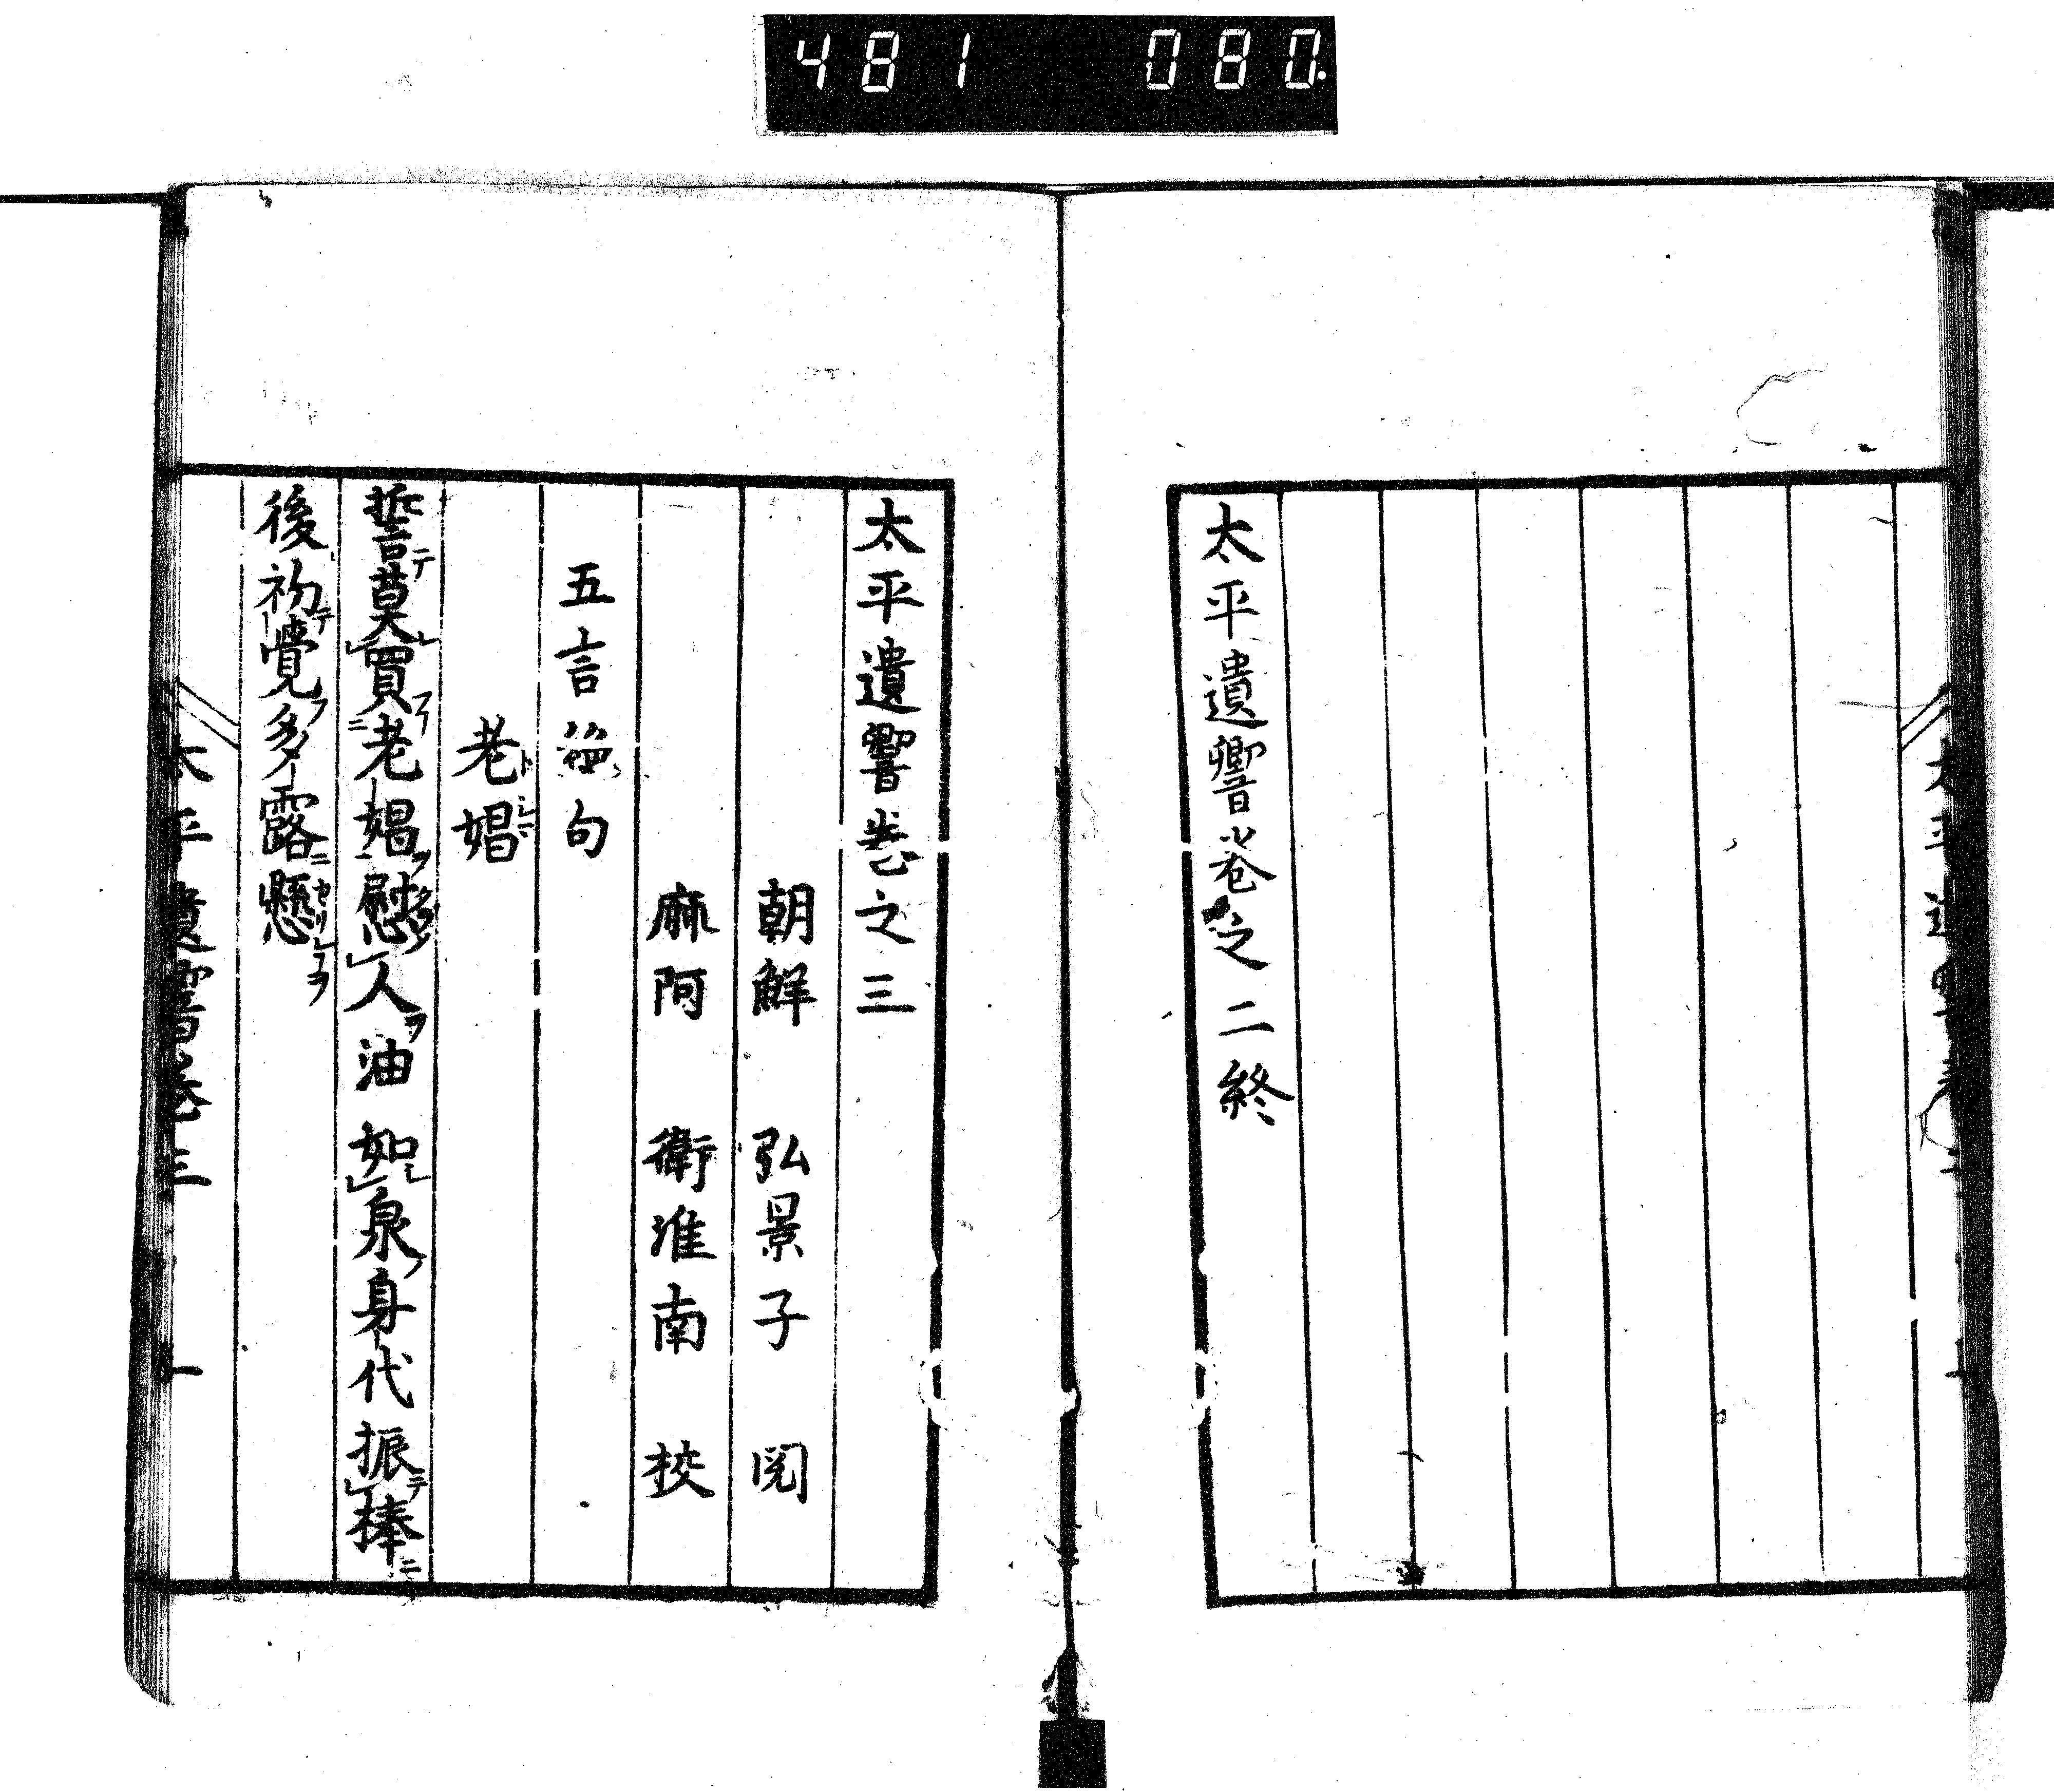 481 080.
太平遺響卷之二終
太平遺響卷之三
朝鮮 弘景子 閲
麻阿 衛淮南 挍
五言絶句
老娼
誓莫買老娼慰人油如泉身代振棒
後初覺多露懸
太平遺響卷三 一